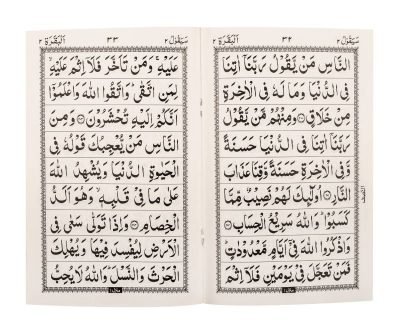 سَيَقُوْلُ ٢
٣٢
اَلْبَقَرَة ٢
النَّاسِ مَنْ يَّقُوْلُ رَبَّنَاۤ اٰتِنَا
فِى الدُّنْيَا وَمَا لَهٗ فِى الْاٰخِرَةِ
مِنْ خَلَاقٍ وَمِنْهُمْ مَّنْ يَّقُوْلُ
رَبَّنَاۤ اٰتِنَا فِى الدُّنْيَا حَسَنَةً
وَّفِى الْاٰخِرَةِ حَسَنَةً وَّقِنَا عَذَابَ
النَّارِ اُولٰٓئِكَ لَهُمْ نَصِيْبٌ مِّمَّا
كَسَبُوْا وَاللّٰهُ سَرِيْعُ الْحِسَابِ
وَاذْكُرُوا اللّٰهَ فِىْۤ اَيَّامٍ مَّعْدُوْدٰتٍ
فَمَنْ تَعَجَّلَ فِىْ يَوْمَيْنِ فَلَاۤ اِثْمَ
سَيَقُوْلُ ٢
٣٣
اَلْبَقَرَة ٢
عَلَيْهِ وَمَنْ تَاَخَّرَ فَلَاۤ اِثْمَ عَلَيْهِ
لِمَنِ اتَّقٰى وَاتَّقُوا اللّٰهَ وَاعْلَمُوْۤا
اَنَّكُمْ اِلَيْهِ تُحْشَرُوْنَ وَمِنَ
النَّاسِ مَنْ يُّعْجِبُكَ قَوْلُهٗ فِى
الْحَيٰوةِ الدُّنْيَا وَيُشْهِدُ اللّٰهَ
عَلٰى مَا فِىْ قَلْبِهٖ وَهُوَ اَلَدُّ
الْخِصَامِ وَاِذَا تَوَلّٰى سَعٰى فِى
الْاَرْضِ لِيُفْسِدَ فِيْهَا وَيُهْلِكَ
الْحَرْثَ وَالنَّسْلَ وَاللّٰهُ لَا يُحِبُّ